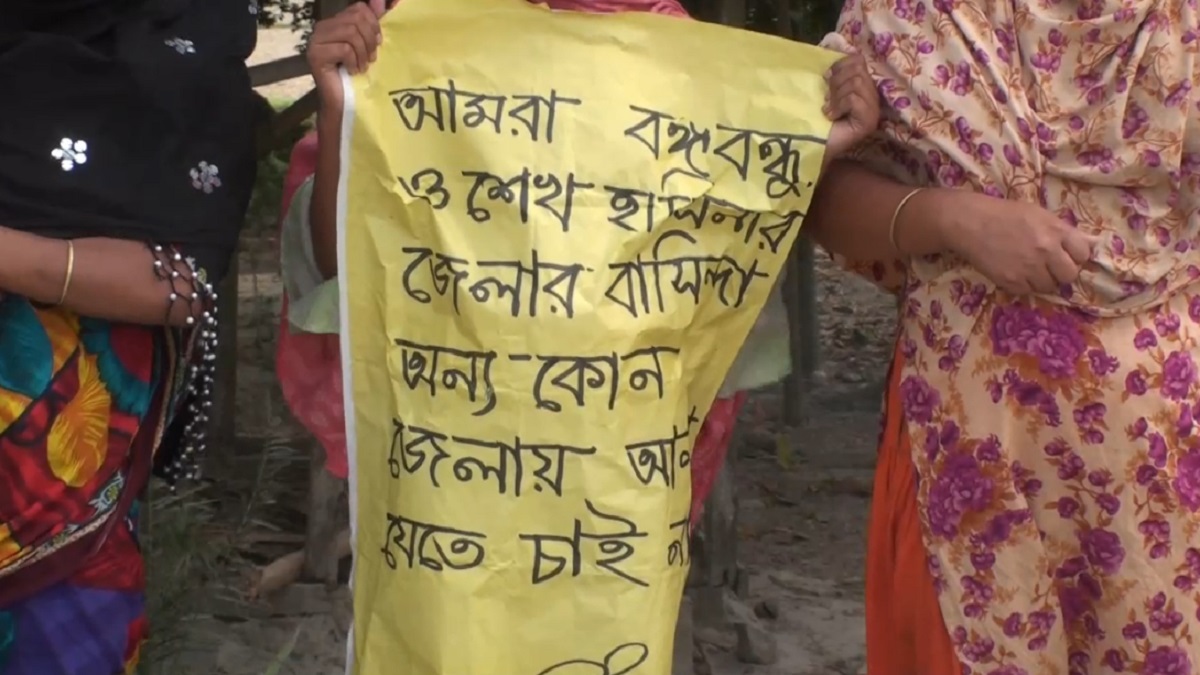 আমরা বঙ্গবন্ধু
ও শেখ হাসিনার
জেলার বাসিন্দা
অন্য কোন
জেলায়
যেতে চাই না